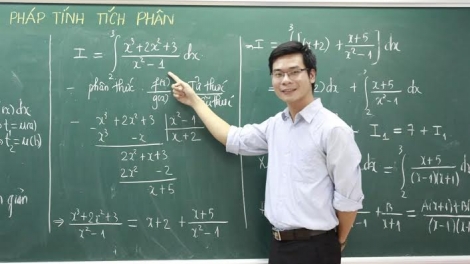 PHÁP TÍNH TÍCH PHÂN
I = ∫₂³ (x³+2x²+3)/(x²-1) dx
- phân thức f(x)/g(x)
x³ + 2x² + 3 | x² - 1
x³ - x | x + 2
2x² + x + 3
2x² - 2
x + 5
⇒ (x³+2x²+3)/(x²-1) = x + 2 + (x+5)/(x²-1)
I = ∫₂³ [(x+2) + (x+5)/(x²-1)] dx
(x+5)/(x²-1)
+ I₁ = 7 + I₁
dx = ∫₂³ (x+5)/((x-1)(x+1))
B/(x+1) = (A(x+1)+B(
(x-1)(x